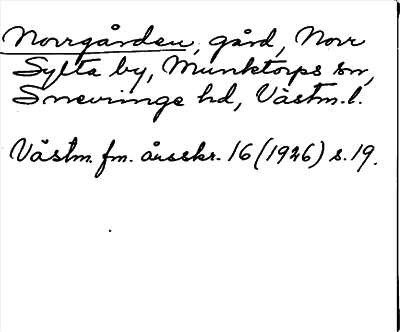 Norrgården, gård, Norr
Sylta by, Munktorps sn,
Snevringe hd, Västm. l.
Västm. fm. årsskr. 16 (1926) s. 19.